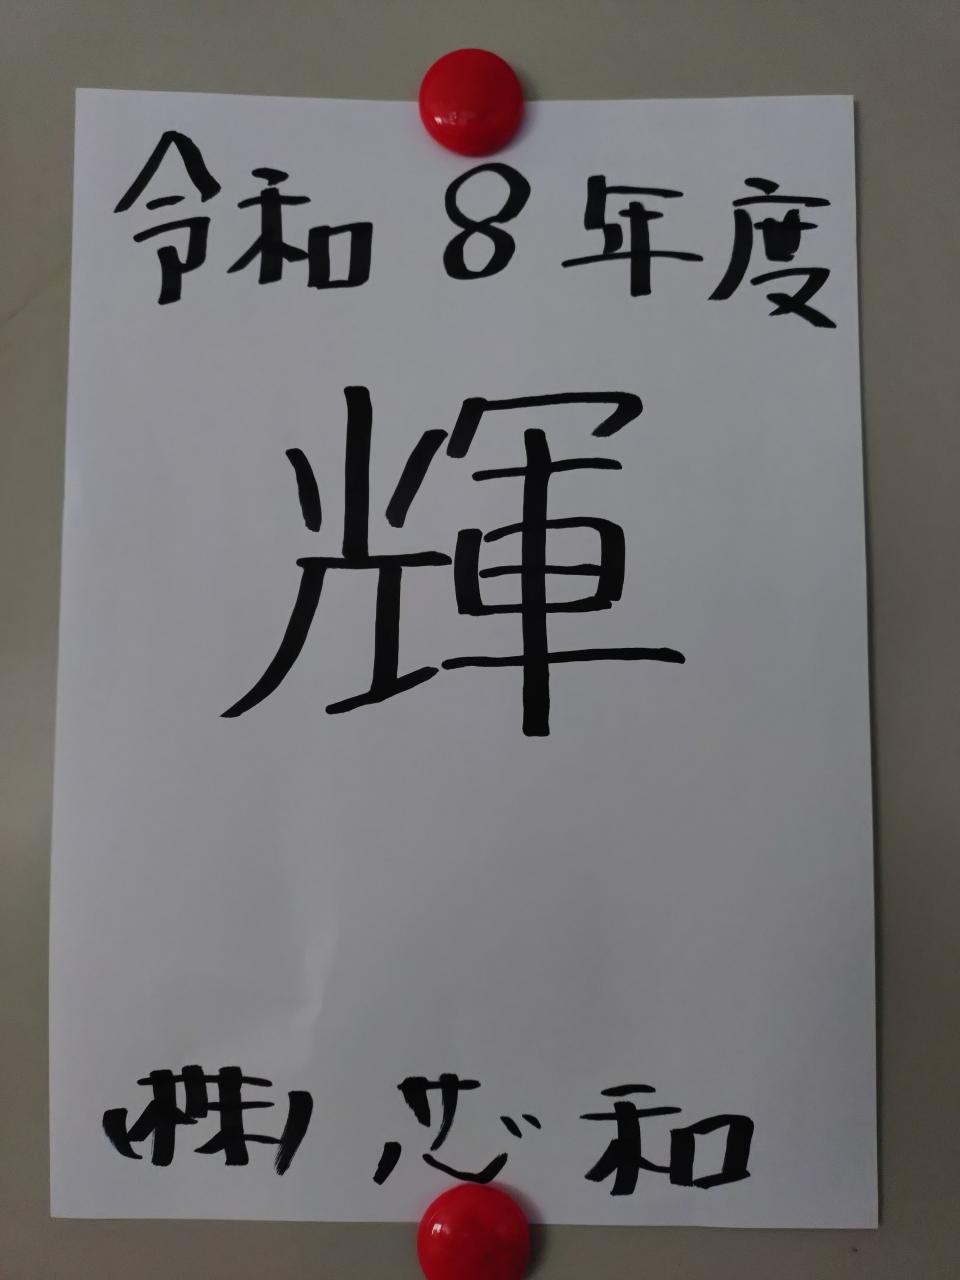 令和8年度
輝
(株)芯和